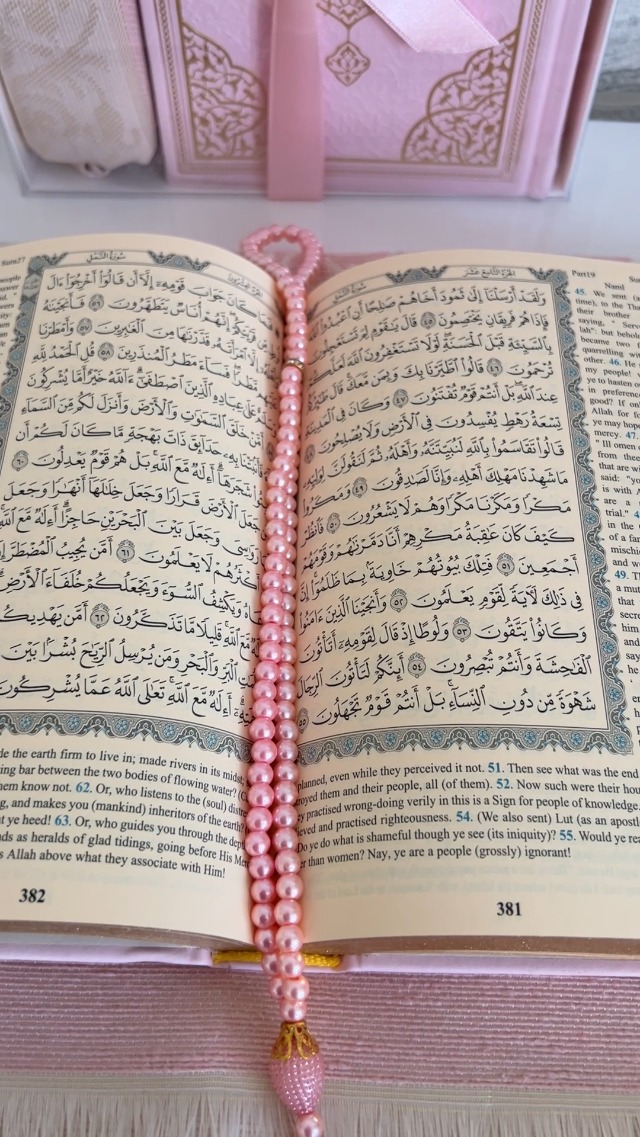 الجزء التاسع عشر
سورة النمل
وَلَقَدْ أَرْسَلْنَآ إِلَىٰ ثَمُودَ أَخَاهُمْ صَٰلِحًا أَنِ ٱعْبُدُوا۟
فَإِذَا هُمْ فَرِيقَانِ يَخْتَصِمُونَ ٤٥ قَالَ يَٰقَوْمِ لِمَ تَسْتَعْجِلُونَ
بِٱلسَّيِّئَةِ قَبْلَ ٱلْحَسَنَةِ لَوْلَا تَسْتَغْفِرُونَ ٱللَّهَ لَعَلَّكُمْ
تُرْحَمُونَ ٤٦ قَالُوا۟ ٱطَّيَّرْنَا بِكَ وَبِمَن مَّعَكَ قَالَ طَٰٓئِرُكُمْ
عِندَ ٱللَّهِ بَلْ أَنتُمْ قَوْمٌ تُفْتَنُونَ ٤٧ وَكَانَ فِى ٱلْمَدِينَةِ
تِسْعَةُ رَهْطٍ يُفْسِدُونَ فِى ٱلْأَرْضِ وَلَا يُصْلِحُونَ ٤٨
قَالُوا۟ تَقَاسَمُوا۟ بِٱللَّهِ لَنُبَيِّتَنَّهُۥ وَأَهْلَهُۥ ثُمَّ لَنَقُولَنَّ لِوَلِيِّهِۦ
مَا شَهِدْنَا مَهْلِكَ أَهْلِهِۦ وَإِنَّا لَصَٰدِقُونَ ٤٩ وَمَكَرُوا۟
مَكْرًا وَمَكَرْنَا مَكْرًا وَهُمْ لَا يَشْعُرُونَ ٥٠ فَٱنظُرْ
كَيْفَ كَانَ عَٰقِبَةُ مَكْرِهِمْ أَنَّا دَمَّرْنَٰهُمْ وَقَوْمَهُمْ
أَجْمَعِينَ ٥١ فَتِلْكَ بُيُوتُهُمْ خَاوِيَةًۢ بِمَا ظَلَمُوٓا۟ إِنَّ
فِى ذَٰلِكَ لَءَايَةً لِّقَوْمٍ يَعْلَمُونَ ٥٢ وَأَنجَيْنَا ٱلَّذِينَ ءَامَنُوا۟
وَكَانُوا۟ يَتَّقُونَ ٥٣ وَلُوطًا إِذْ قَالَ لِقَوْمِهِۦٓ أَتَأْتُونَ
ٱلْفَٰحِشَةَ وَأَنتُمْ تُبْصِرُونَ ٥٤ أَئِنَّكُمْ لَتَأْتُونَ ٱلرِّجَالَ
شَهْوَةً مِّن دُونِ ٱلنِّسَآءِ بَلْ أَنتُمْ قَوْمٌ تَجْهَلُونَ ٥٥
Part19
Naml
45. We sent
time), to the
their brother
saying, "
but behold
became two
quarrelling
other. 46. He
my people!
ye to hasten
in preference
good? If only
Allah for
ye may hope
mercy. 47.
"Ill omen
from thee
that are
said: "
is with
are a
trial."
in the
of a
mischief
and
49.
a
that
planned, even while they perceived it not. 51. Then see what was the end
and their people, all (of them). 52. Now such were their
practised wrong-doing verily in this is a Sign for people of knowledge.
and practised righteousness. 54. (We also sent) Lut (as an apostle
Do ye do what is shameful though ye see (its iniquity)? 55. Would ye
than women? Nay, ye are a people (grossly) ignorant!
381
سورة النمل
Sura27
كَانَ جَوَابَ قَوْمِهِۦٓ إِلَّآ أَن قَالُوٓا۟ أَخْرِجُوٓا۟ ءَالَ
إِنَّهُمْ أُنَاسٌ يَتَطَهَّرُونَ ٥٦ فَأَنجَيْنَٰهُ
قَدَّرْنَٰهَا مِنَ ٱلْغَٰبِرِينَ ٥٧ وَأَمْطَرْنَا
فَسَآءَ مَطَرُ ٱلْمُنذَرِينَ ٥٨ قُلِ ٱلْحَمْدُ لِلَّهِ
عَلَىٰ عِبَادِهِ ٱلَّذِينَ ٱصْطَفَىٰٓ ءَآللَّهُ خَيْرٌ أَمَّا يُشْرِكُونَ
خَلَقَ ٱلسَّمَٰوَٰتِ وَٱلْأَرْضَ وَأَنزَلَ لَكُم مِّنَ ٱلسَّمَآءِ
بِهِۦ حَدَآئِقَ ذَاتَ بَهْجَةٍ مَّا كَانَ لَكُمْ أَن
شَجَرَهَآ أَءِلَٰهٌ مَّعَ ٱللَّهِ بَلْ هُمْ قَوْمٌ يَعْدِلُونَ ٦٠
ٱلْأَرْضَ قَرَارًا وَجَعَلَ خِلَٰلَهَآ أَنْهَٰرًا وَجَعَلَ
وَجَعَلَ بَيْنَ ٱلْبَحْرَيْنِ حَاجِزًا أَءِلَٰهٌ مَّعَ ٱللَّهِ
أَكْثَرُهُمْ لَا يَعْلَمُونَ ٦١ أَمَّن يُجِيبُ ٱلْمُضْطَرَّ
وَيَكْشِفُ ٱلسُّوٓءَ وَيَجْعَلُكُمْ خُلَفَآءَ ٱلْأَرْضِ
مَّعَ ٱللَّهِ قَلِيلًا مَّا تَذَكَّرُونَ ٦٢ أَمَّن يَهْدِيكُمْ
ٱلْبَرِّ وَٱلْبَحْرِ وَمَن يُرْسِلُ ٱلرِّيَٰحَ بُشْرًۢا بَيْنَ
أَءِلَٰهٌ مَّعَ ٱللَّهِ تَعَٰلَى ٱللَّهُ عَمَّا يُشْرِكُونَ
the earth firm to live in; made rivers in its midst;
bar between the two bodies of flowing water?
know not. 62. Or, who listens to the (soul)
and makes you (mankind) inheritors of the earth?
ye heed! 63. Or, who guides you through the
as heralds of glad tidings, going before His
Allah above what they associate with Him!
382